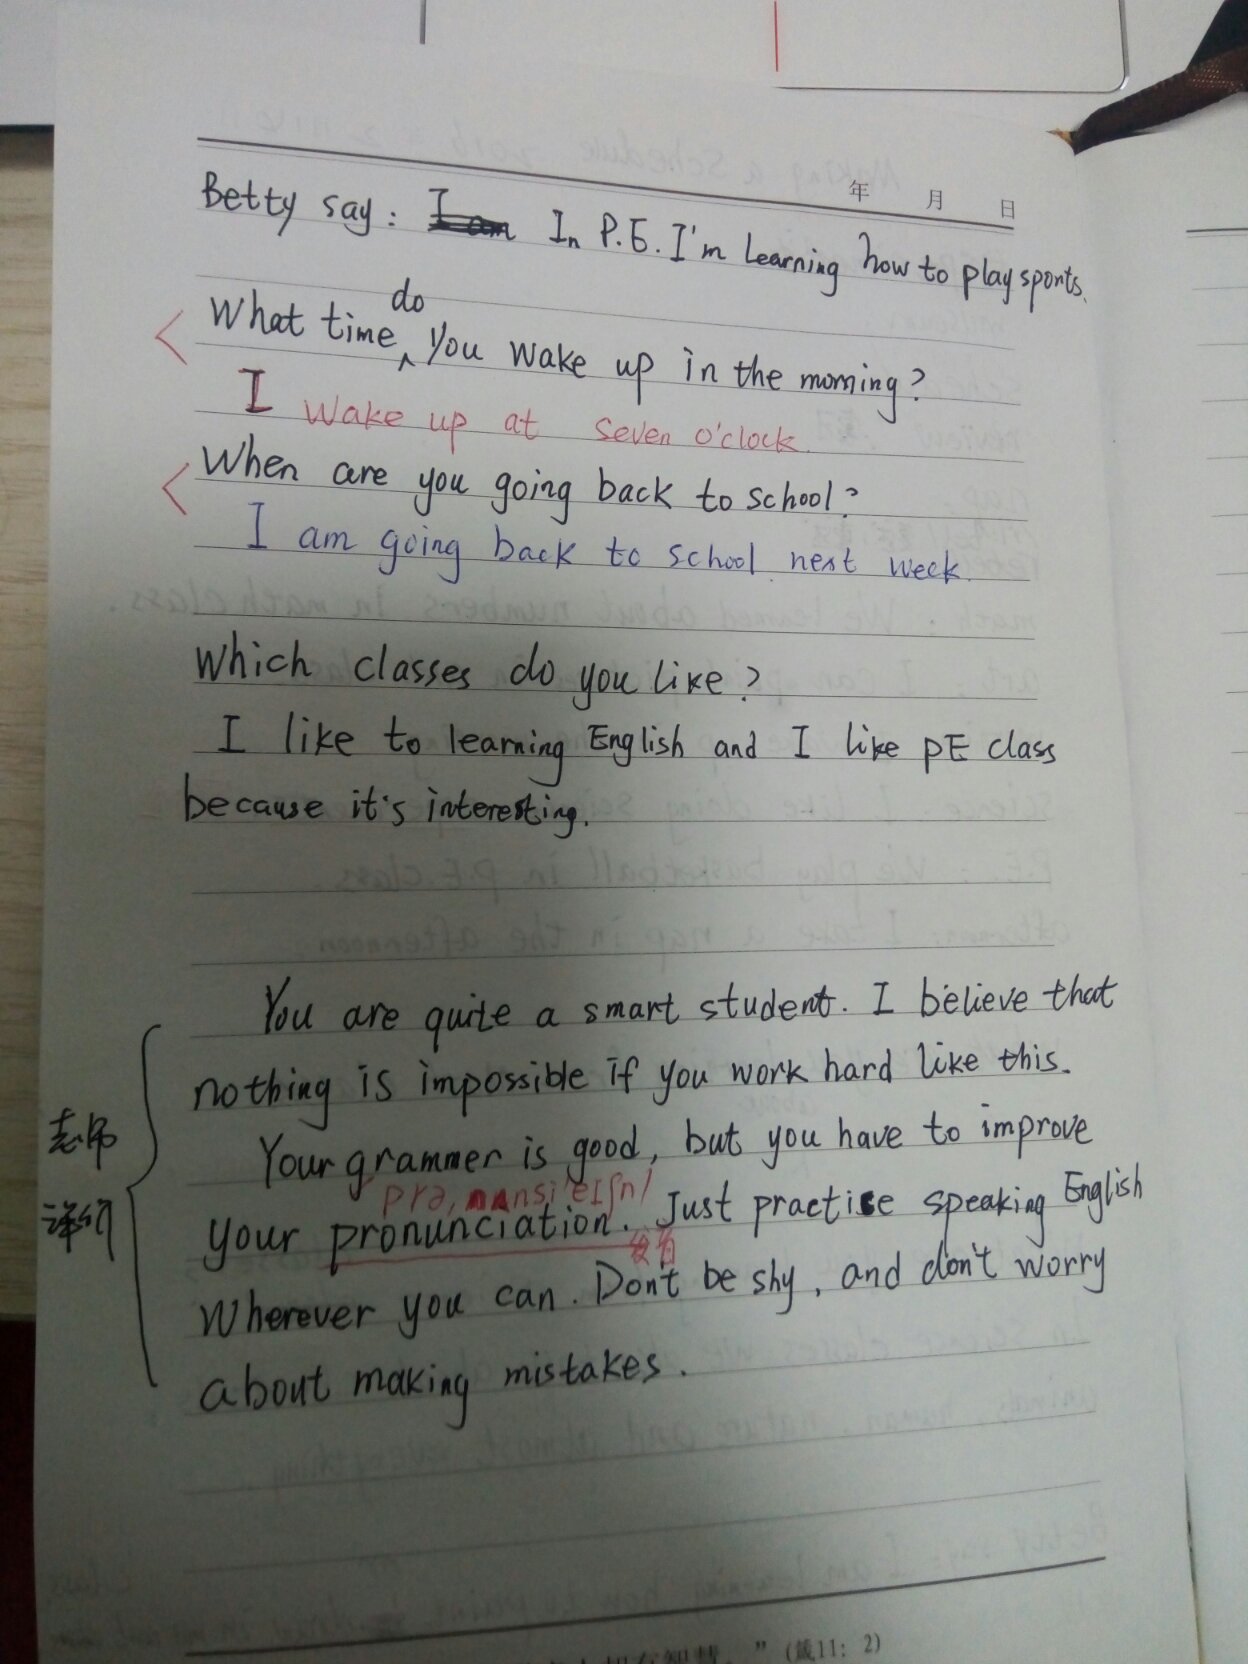 年 月 日
Betty say: I am In P.E. I'm learning how to play sports.
do
What time you wake up in the morning?
I wake up at seven o'clock.
When are you going back to school?
I am going back to school next week.
Which classes do you like?
I like to learning English and I like PE class
because it's interesting.
You are quite a smart student. I believe that
nothing is impossible if you work hard like this.
Your grammer is good, but you have to improve
your pronunciation. Just practice speaking English
发音
wherever you can. Don't be shy, and don't worry
about making mistakes.
老师
评价
" (箴11: 2)